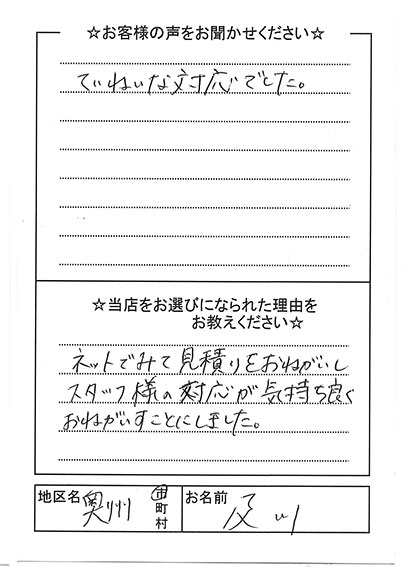 ☆お客様の声をお聞かせください☆
ていねいな対応でした。
☆当店をお選びになられた理由を
お教えください☆
ネットでみて見積りをおねがいし
スタッフ様の対応が気持ち良く
おねがいすことにしました。
地区名 奥州 市町村 お名前 及川